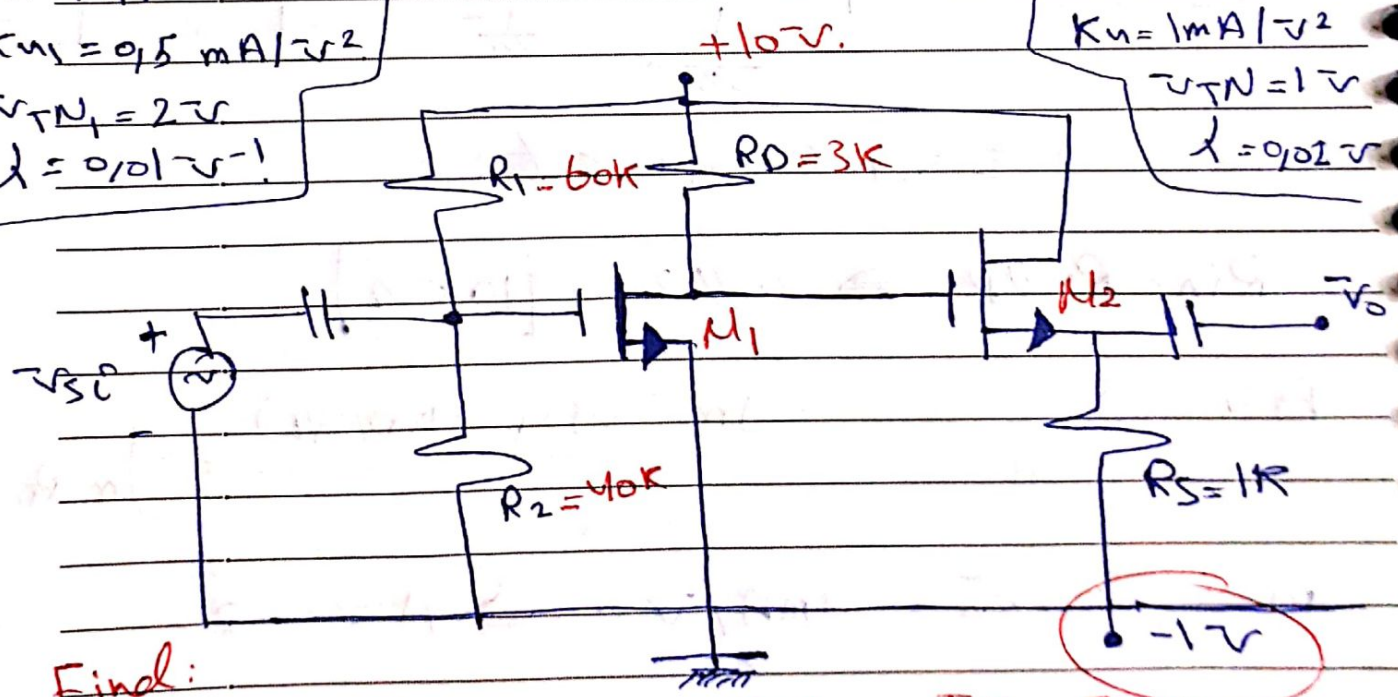 Kn1 = 0,5 mA/v²
VTN1 = 2v
λ = 0,01 v⁻¹
+10v.
Kn = 1mA/v²
vTN = 1v
λ = 0,01 v
R1 = 60K
RD = 3K
M1
M2
vo
+
vsi
-
R2 = 40K
RS = 1K
-1v
Find: